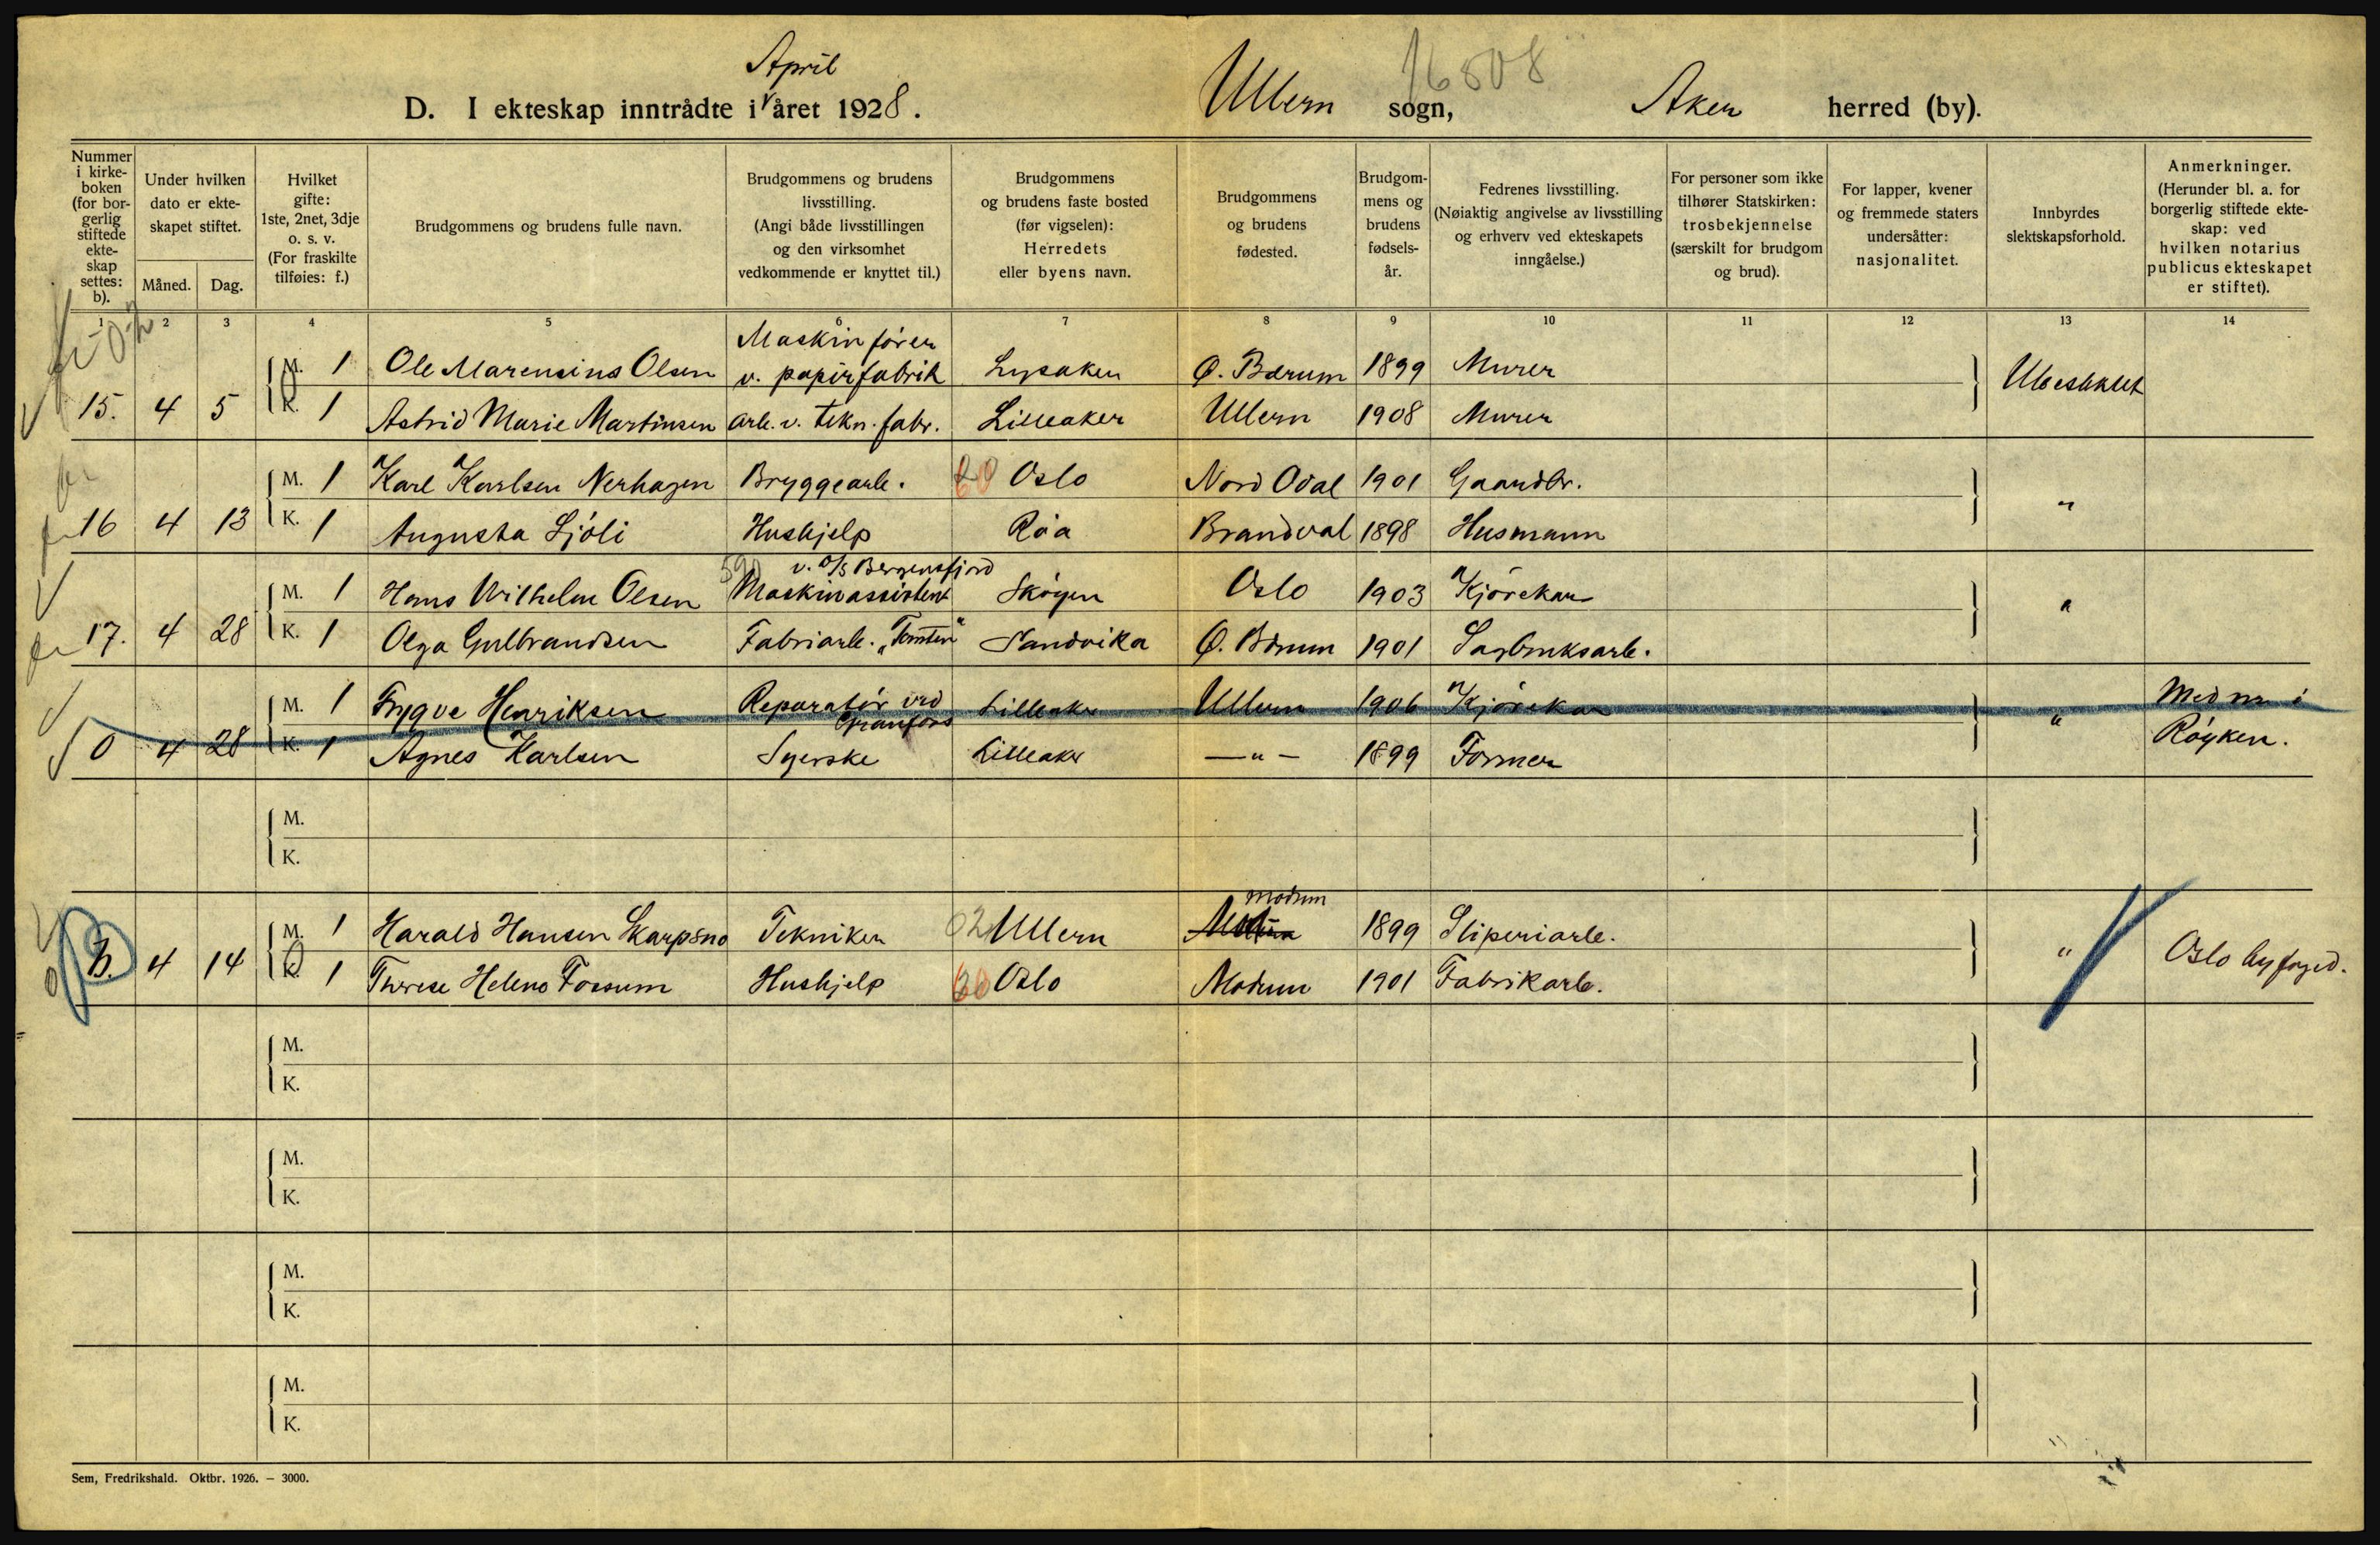 April
16808
D. I ekteskap inntrådte i året 1928. Ullern sogn, Aker herred (by).
Nummer i kirke- boken (for bor- gerlig stiftede ekte- skap settes: b).
Under hvilken dato er ekte- skapet stiftet.
Måned. Dag.
Hvilket gifte: 1ste, 2net, 3dje o. s. v. (For fraskilte tilføies: f.)
Brudgommens og brudens fulle navn.
Brudgommens og brudens livsstilling. (Angi både livsstillingen og den virksomhet vedkommende er knyttet til.)
Brudgommens og brudens faste bosted (før vigselen): Herredets eller byens navn.
Brudgommens og brudens fødested.
Brudgom- mens og brudens fødsels- år.
Fedrenes livsstilling. (Nøiaktig angivelse av livsstilling og erhverv ved ekteskapets inngåelse.)
For personer som ikke tilhører Statskirken: trosbekjennelse (særskilt for brudgom og brud).
For lapper, kvener og fremmede staters undersåtter: nasjonalitet.
Innbyrdes slektskapsforhold.
Anmerkninger. (Herunder bl. a. for borgerlig stiftede ekte- skap: ved hvilken notarius publicus ekteskapet er stiftet).
1 2 3 4 5 6 7 8 9 10 11 12 13 14
Maskinfører
M. 1 Ole Marensius Olsen v. papirfabrik Lysaker Ø. Bærum 1899 Murer Ubeslektet
15. 4 5 K. 1 Astrid Marie Martinsen arb. v. tekn. fabr. Lilleaker Ullern 1908 Murer
M. 1 Karl Karlsen Nerhagen Bryggearb. Oslo Nord Odal 1901 Gaardbr. "
16 4 13 K. 1 Augusta Sjöli Hushjelp Röa Brandval 1898 Husmann
v. D/S Bergensfjord
M. 1 Hans Wilhelm Olsen Maskinassistent Skøyen Oslo 1903 Kjörekar "
17. 4 28 K. 1 Olga Gulbrandsen Fabriarb. "Tomten" Sandvika Ø. Bærum 1901 Sagbruksarb.
M. 1 Trygve Henriksen Reparatör ved Granfoss Lilleaker Ullern 1906 Kjörekar " Med nr i
0 4 28 K. 1 Agnes Karlsen Syerske Lilleaker —"— 1899 Former Röyken.
M.
K.
Modum
M. 1 Harald Hansen Skarpsno Tekniker 02 Ullern 1899 Sliperiarb. " Oslo byfoged.
b. 4 14 K. 1 Therese Helene Fossum Hushjelp Oslo Modum 1901 Fabrikarb.
M.
K.
M.
K.
M.
K.
M.
K.
Sem, Fredrikshald. Oktbr. 1926. – 3000.